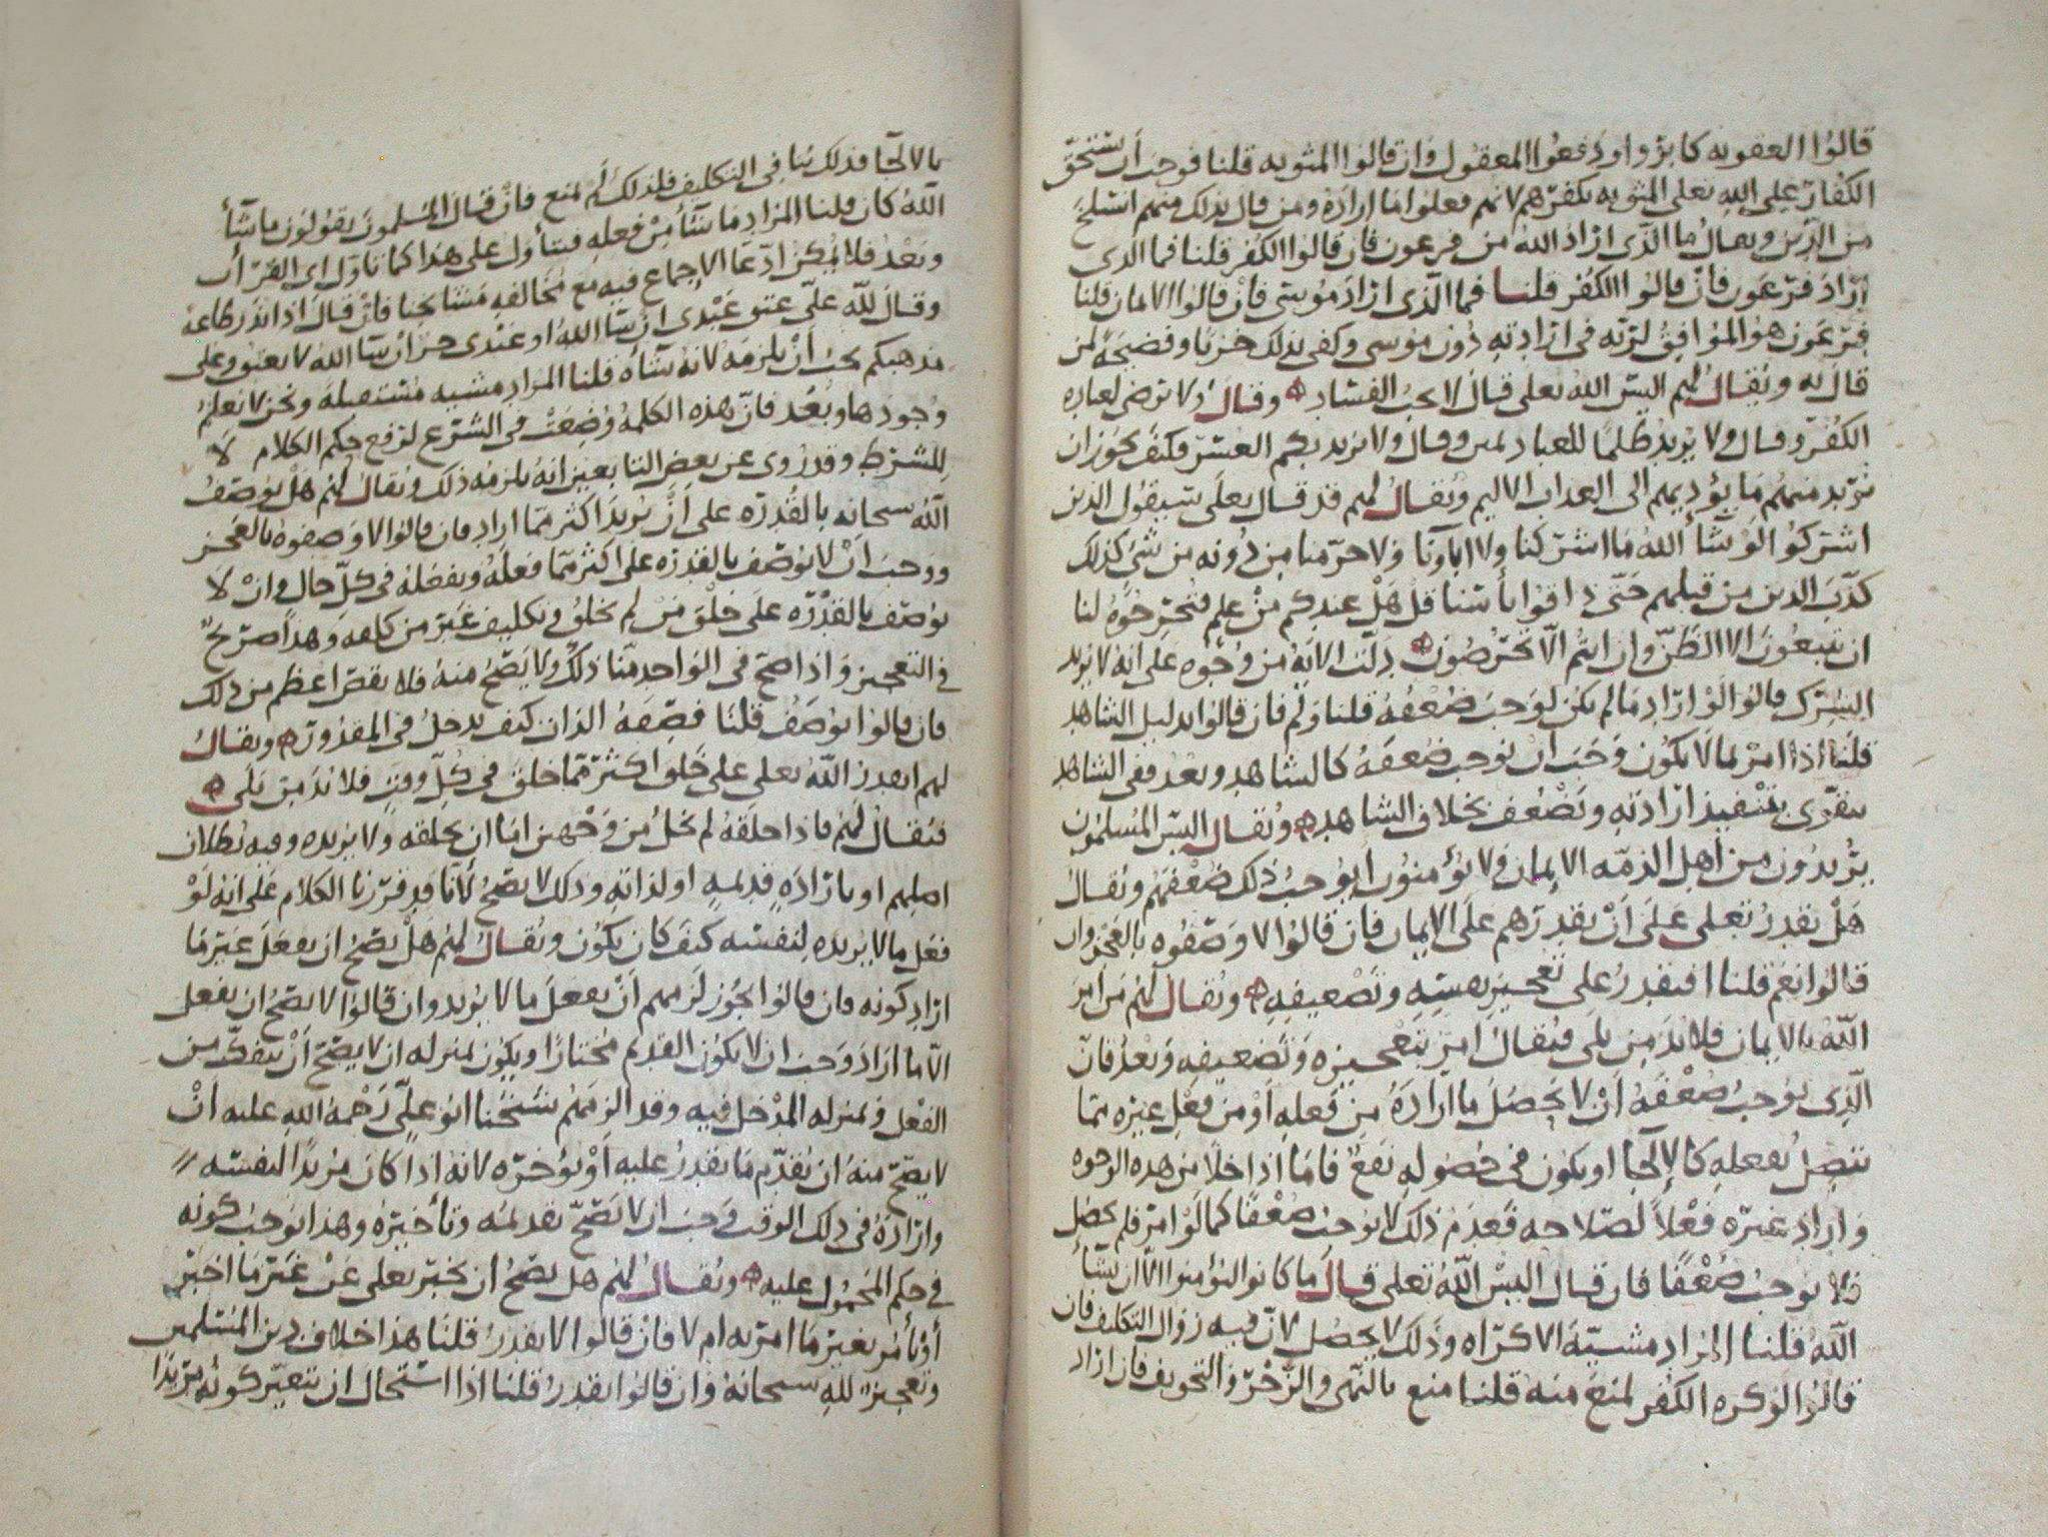 قالوا العقوبه كابروا ودفعوا المعقول وان قالوا المثوبه قلنا فوجب أن يستحق
الكفار على الله تعلى المثوبه بكفرهم لانهم فعلوا ما اراده ومن قال بذلك منهم انسلخ
من الدين ويقال ما الذى اراد الله من فرعون فان قالوا الكفر قلنا فما الذى
اراد فرعون فان قالوا الكفر قلنا فما الذى اراد موسى فان قالوا الايمان قلنا
ففرعون هو الموافق لربه في ارادته دون موسى وكفى بذلك خزيا وفضيحة لمن
قال به ويقال لهم اليس الله تعلى قال لا يحب الفساد وقال ولا يرضى لعباده
الكفر وقال ولا يريد ظلما للعباد وقال ولا يريد بكم العسر فكيف يجوز ان
يريد منهم ما يؤديهم الى العذاب الاليم ويقال لهم قد قال تعلى سيقول الذين
اشركوا لو شأ الله ما اشركنا ولا اباؤنا ولا حرمنا من دونه من شئ كذلك
كذب الذين من قبلهم حتى ذاقوا بأسنا قل هل عندكم من علم فتخرجوه لنا
ان تتبعون الا الظن وان انتم الا تخرصون دلت الايه من وجوه على انه لا يريد
الشرك قالوا لو اراد ما لم يكن لوجب ضعفه قلنا ولم فان قالوا بدليل الشاهد
قلنا اذا امر بما لا يكون وجب ان يوجب ضعفه كالشاهد وبعد ففى الشاهد
يتقوى بتنفيذ ارادته ويضعف بخلاف الشاهد ويقال اليس المسلمون
يريدون من اهل الذمه الايمان ولا يؤمنون ايوجب ذلك ضعفهم ويقال
هل يقدر تعلى على أن يقدرهم على الايمان فان قالوا لا وصفوه بالعجز وان
قالوا نعم قلنا افيقدر على تعجيز نفسه وتضعيفه ويقال لهم من امر
الله بالايمان فلا بد من بلى فيقال امر بتعجيزه وتضعيفه وبعد فان
الذى يوجب ضعفه أن لا يحصل ما اراده من فعله أو من فعل غيره مما
يتصل بفعله كالإلجا او يكون في حصوله نفع فاما اذا خلا من هذه الوجوه
واراد غيره فعلا لصلاحه فعدم ذلك لا يوجب ضعفا كما لو امر فلم يحصل
فلا يوجب ضعفا فان قال اليس الله تعلى قال ما كانوا ليؤمنوا الا ان يشأ
الله قلنا المراد مشيئة الاكراه وذلك لا يحصل لان فيه زوال التكليف فان
قالوا لو كره الكفر لمنع منه قلنا منع بالنهى والزجر والتخويف فان اراد
بالالجا فذلك ينافى التكليف فلذلك لم يمنع فان قال المسلمون يقولون ما شأ
الله كان قلنا المراد ما شأ من فعله فيتأول على هذا كما ناول اى القرأن
وبعد فلا يمكن ادعا الاجماع فيه مع مخالفه مشائخنا فان قال اذا نذر طاعة
وقال لله على عتق عبدى ان شا الله او عبدى حر ان شا الله لا يعتق وعلى
مذهبكم يجب أن يلزمه لانه شأه قلنا المراد مشيه مستقبلة ونحن لا نعلم
وجودها وبعد فان هذه الكلمه وضعت في الشرع لرفع حكم الكلام لا
للشرط وقد روى عن بعض التابعين انه يلزمه ذلك ويقال لهم هل يوصف
الله سبحانه بالقدره على أن يريد اكثر مما اراد فان قالوا لا وصفوه بالعجز
ووجب أن لا يوصف بالقدره على اكثر مما فعله ويفعله في كل حال وان لا
يوصف بالقدره على خلق من لم يخلق وتكليف غير من كلفه وهذا صريح
في التعجيز واذا صح في الواحد منا ذلك ولا يصح منه فلا نقص اعظم من ذلك
فان قالوا يوصف قلنا فصفه الذات كيف يدخل في المقدور ويقال
لهم ايقدر الله تعلى على خلق اكثر مما خلق في كل وقت فلا بد من بلى
فيقال لهم فاذا خلقه لم يخل من وجهين اما ان يخلقه ولا يريده وفيه بطلان
اصلهم او بارادة قديمة او لذاته وذلك لا يصح لانا قد قررنا الكلام على انه لو
فعل ما لا يريده لنفسه كيف كان يكون ويقال لهم هل يصح ان يفعل غير ما
اراد كونه فان قالوا يجوز لزمهم أن يفعل ما لا يريد وان قالوا لا يصح ان يفعل
الا ما اراد وجب ان لا يكون القديم مختارا ويكون بمنزله ان لا يصح أن ينفك من
الفعل وبمنزله المدخل فيه وقد الزمهم شيخنا ابو على رحمة الله عليه أن
لا يصح منه ان يقدم ما يقدر عليه أو يؤخره لانه اذا كان مريدا لنفسه
وارادة في ذلك الوقت وجب ان لا يصح تقديمه وتأخيره وهذا يوجب كونه
في حكم المحمول عليه ويقال لهم هل يصح ان يخبر تعلى عن غير ما اخبر
أو يأمر بغير ما امر به ام لا فان قالوا لا يقدر قلنا هذا خلاف دين المسلمين
وتعجيز لله سبحانه وان قالوا يقدر قلنا اذا استحال ان يتغير كونه مريدا